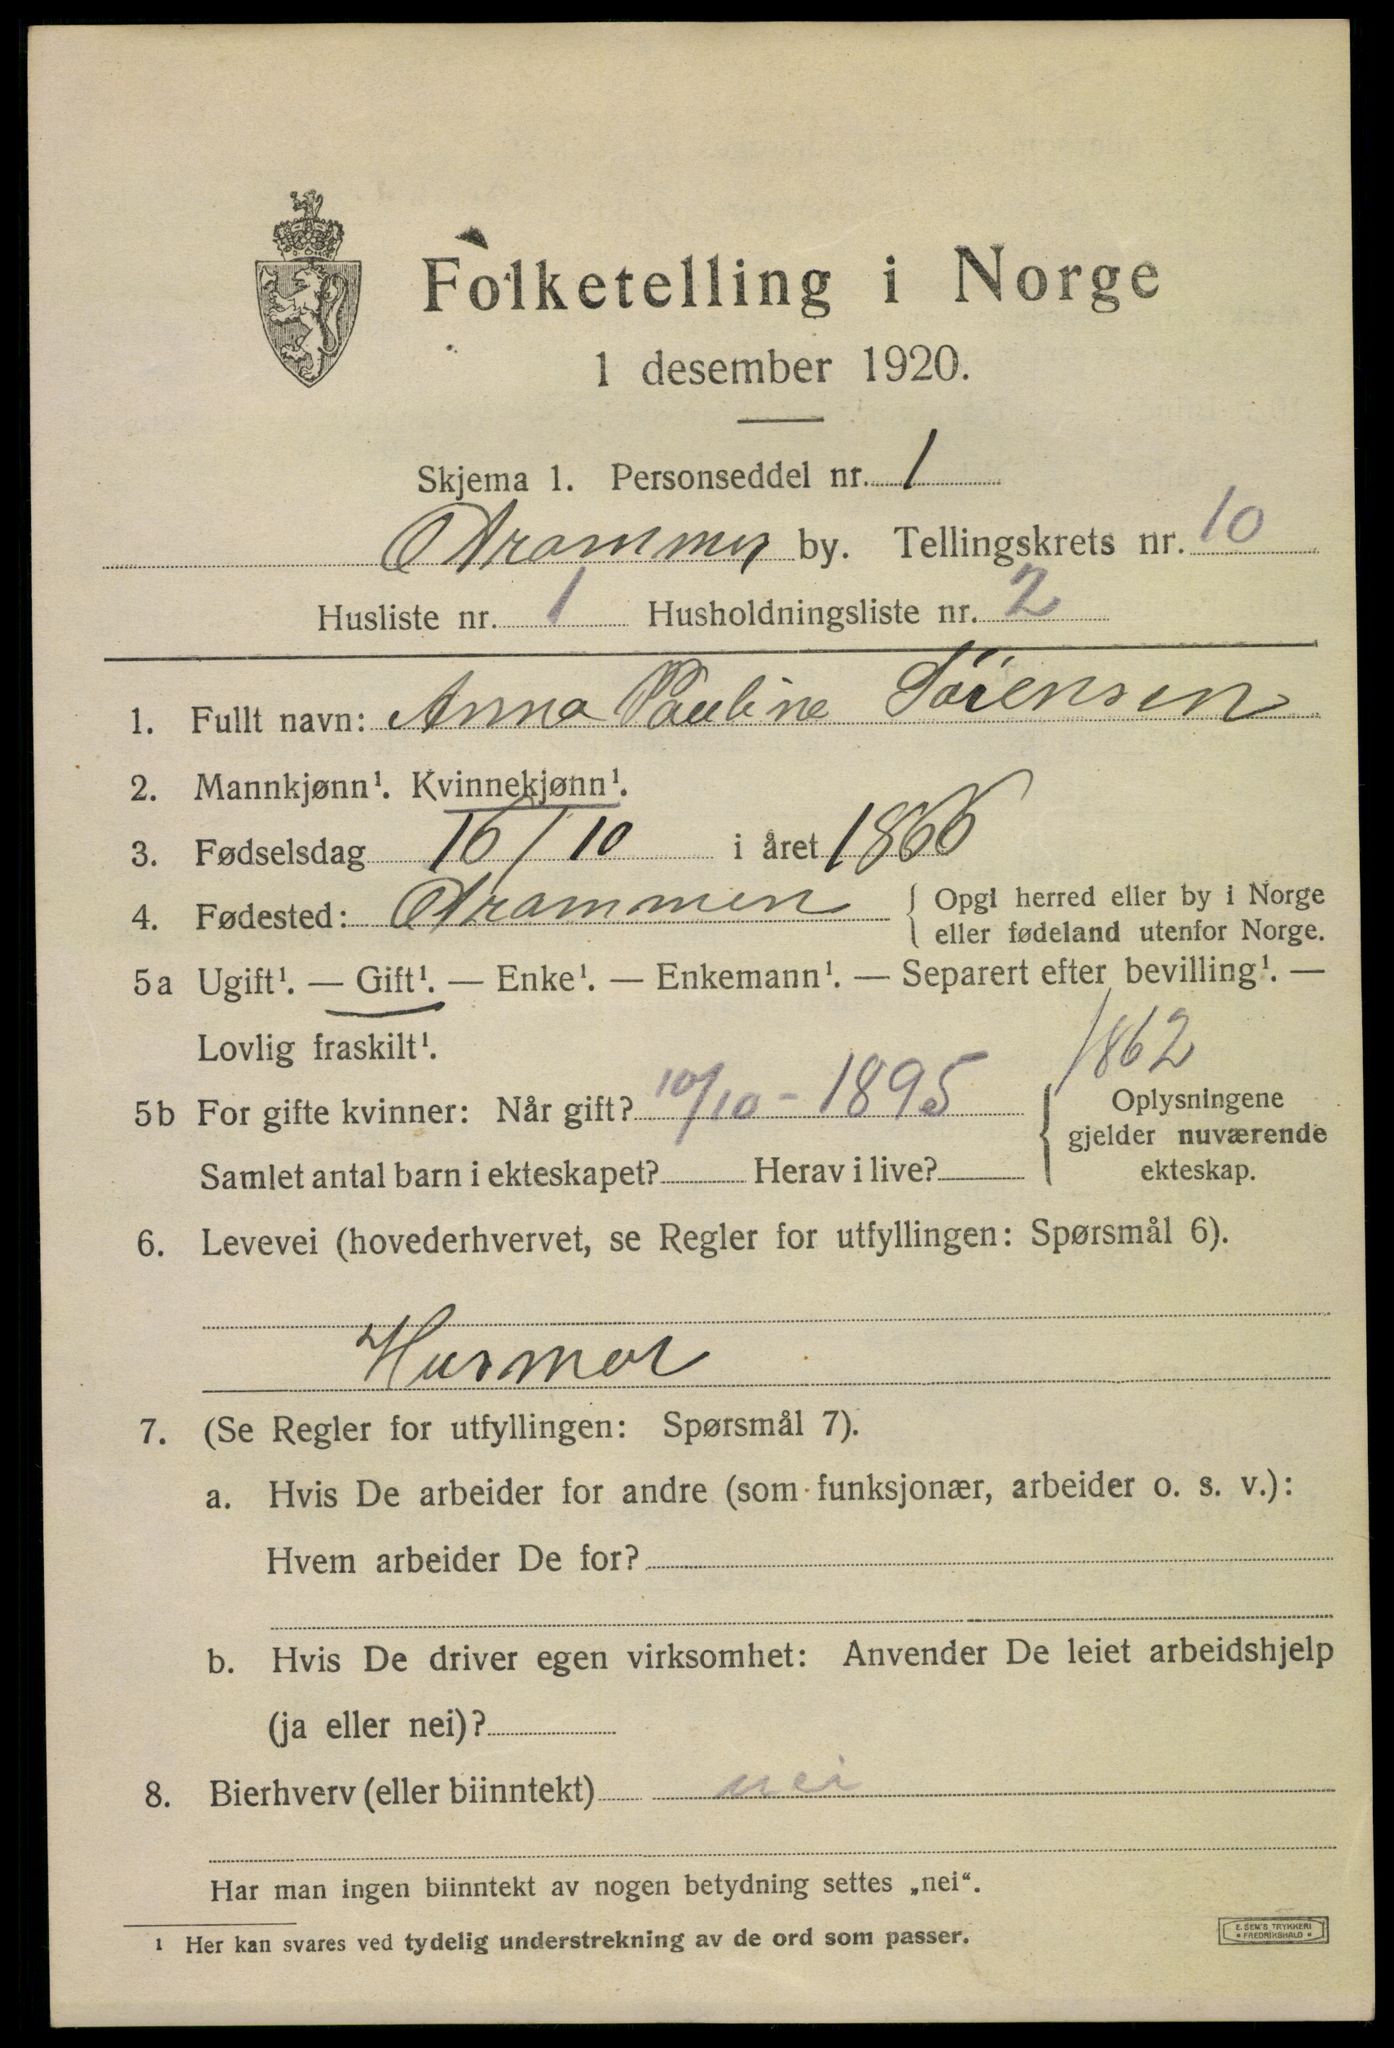 Folketelling i Norge
1 desember 1920.
Skjema 1. Personseddel nr. 1
Drammen by. Tellingskrets nr. 10
Husliste nr. 1 Husholdningsliste nr. 2
1. Fullt navn: Anna Pauline Sörensen
2. Mannkjønn¹. Kvinnekjønn¹.
3. Fødselsdag 16/10 i året 1866
4. Fødested: Drammen { Opgi herred eller by i Norge
eller fødeland utenfor Norge.
5a Ugift¹. — Gift¹. — Enke¹. — Enkemann¹. — Separert efter bevilling¹. —
Lovlig fraskilt¹.
1862
5b For gifte kvinner: Når gift? 10/10 - 1895
Samlet antal barn i ekteskapet? Herav i live?
{ Oplysningene
gjelder nuværende
ekteskap.
6. Levevei (hovederhvervet, se Regler for utfyllingen: Spørsmål 6).
Husmor
7. (Se Regler for utfyllingen: Spørsmål 7).
a. Hvis De arbeider for andre (som funksjonær, arbeider o. s. v.):
Hvem arbeider De for?
b. Hvis De driver egen virksomhet: Anvender De leiet arbeidshjelp
(ja eller nei)?
8. Bierhverv (eller biinntekt) nei
Har man ingen biinntekt av nogen betydning settes „nei“.
¹ Her kan svares ved tydelig understrekning av de ord som passer.
E. SEM'S TRYKKERI
* FREDRIKSHALD *